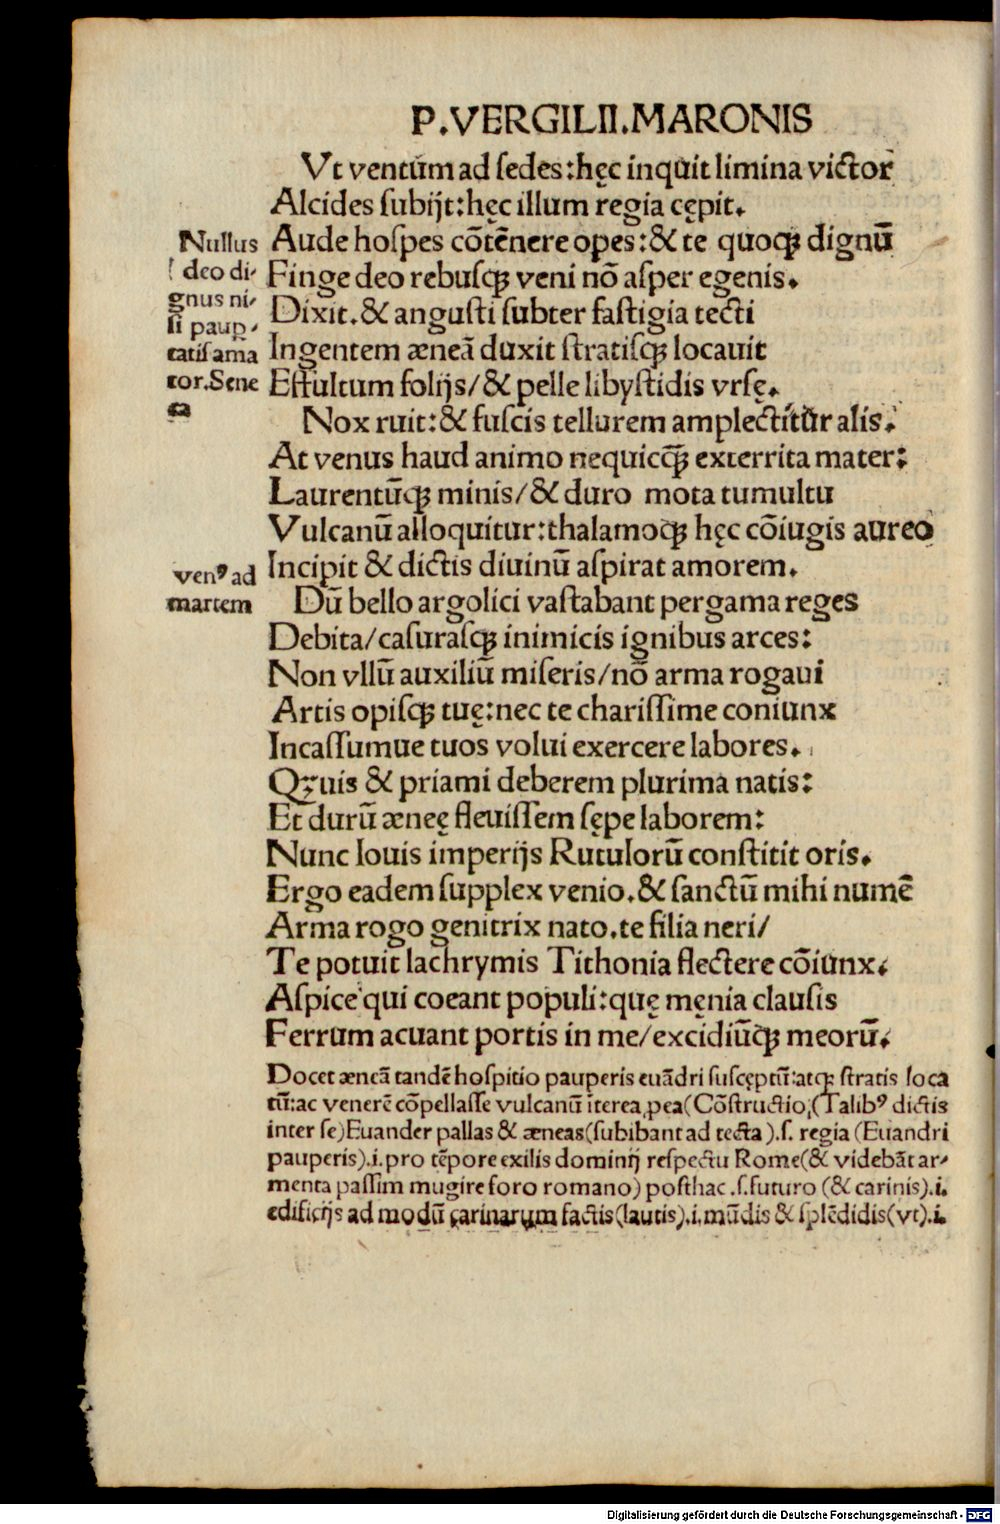 P.VERGILII.MARONIS
Vt ventum ad sedes:hęc inquit limina victor
Alcides subijt:hęc illum regia cępit.
Aude hospes cõtẽnere opes:& te quoqꝫ dignũ
Finge deo rebusqꝫ veni nõ asper egenis.
Dixit.& angusti subter fastigia tecti
Ingentem æneã duxit stratisqꝫ locauit
Effultum folijs/& pelle libystidis vrsę.
Nox ruit:& fuscis tellurem amplectitur alis.
At venus haud animo nequicq̃ꝫ exterrita mater:
Laurentũqꝫ minis/& duro mota tumultu
Vulcanũ alloquitur:thalamoqꝫ hęc cõiugis aureo
Incipit & dictis diuinũ aspirat amorem.
Dũ bello argolici vastabant pergama reges
Debita/casurasqꝫ inimicis ignibus arces:
Non vllũ auxiliũ miseris/nõ arma rogaui
Artis opisqꝫ tuę:nec te charissime coniunx
Incassumue tuos volui exercere labores.
Qꝫuis & priami deberem plurima natis:
Et durũ æneę fleuissem sępe laborem:
Nunc Iouis imperijs Rutulorũ constitit oris.
Ergo eadem supplex venio.& sanctũ mihi numẽ
Arma rogo genitrix nato.te filia neri/
Te potuit lachrymis Tithonia flectere cõiunx.
Aspice qui coeant populi:que męnia clausis
Ferrum acuant portis in me/excidiũqꝫ meorũ.
Nullus
deo di-
gnus ni-
si paup-
tatis ama
tor.Sene
ca
venꝰ ad
martem
Docet æneã tandẽ hospitio pauperis euãdri suscęptũ:atqꝫ stratis loca
tũ:ac venerẽ cõpellasse vulcanũ iterea pea(Cõstructio.(Talibꝰ dictis
inter se)Euander pallas & æneas(subibant ad tecta).s. regia (Euandri
pauperis).i.pro tẽpore exilis dominij respectu Rome(& videbãt ar-
menta passim mugire foro romano) posthac .s.futuro (& carinis).i.
edificijs ad modũ carinarum factis(lautis).i.mũdis & splẽdidis(vt).i.
Digitalisierung gefördert durch die Deutsche Forschungsgemeinschaft - DFG